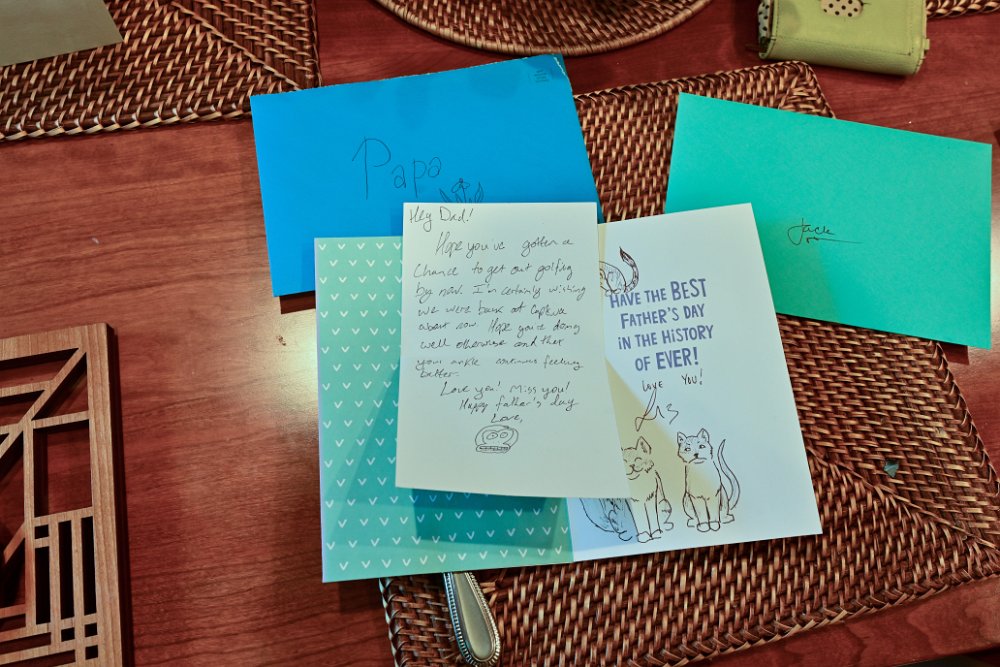 Papa
Jack
Hey Dad!
Hope you've gotten a
chance to get out golfing
by now. I'm certainly wishing
we were back at Captiva
about now. Hope you're doing
well otherwise and that
your ankle continues feeling
better.
Love you! Miss you!
Happy father's day
Love,
HAVE THE BEST
FATHER'S DAY
IN THE HISTORY
OF EVER!
LOVE YOU!